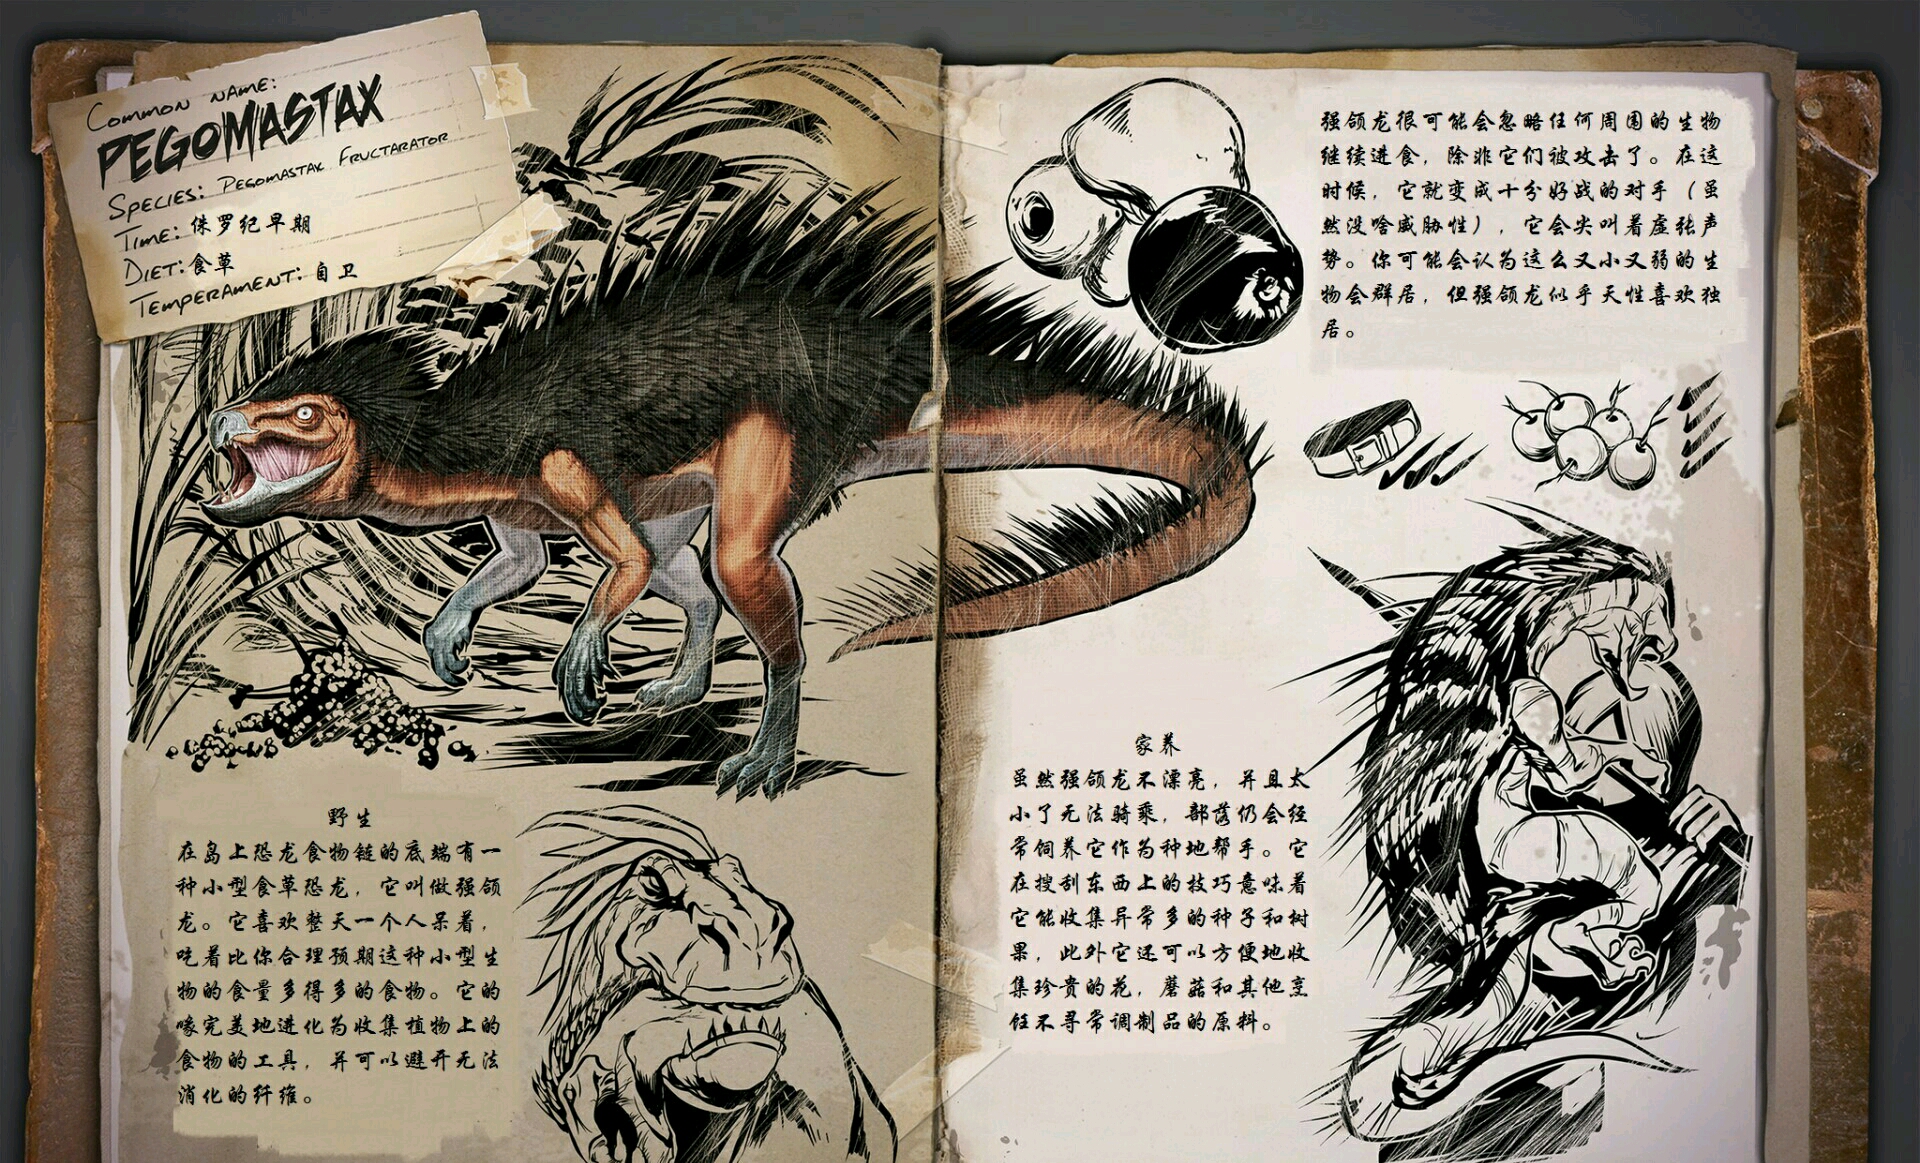 COMMON NAME:
PEGOMASTAX
SPECIES: PEGOMASTAX FRUCTARATOR
TIME: 侏罗纪早期
DIET: 食草
TEMPERAMENT: 自卫
野生
在岛上恐龙食物链的底端有一
种小型食草恐龙，它叫做强颌
龙。它喜欢整天一个人呆着，
吃着比你合理预期这种小型生
物的食量多得多的食物。它的
喙完美地进化为收集植物上的
食物的工具，并可以避开无法
消化的纤维。
强颌龙很可能会忽略任何周围的生物
继续进食，除非它们被攻击了。在这
时候，它就变成十分好战的对手（虽
然没啥威胁性），它会尖叫着虚张声
势。你可能会认为这么又小又弱的生
物会群居，但强颌龙似乎天性喜欢独
居。
家养
虽然强颌龙不漂亮，并且太
小了无法骑乘，部落仍会经
常饲养它作为种地帮手。它
在搜刮东西上的技巧意味着
它能收集异常多的种子和树
果，此外它还可以方便地收
集珍贵的花，蘑菇和其他烹
饪不寻常调制品的原料。